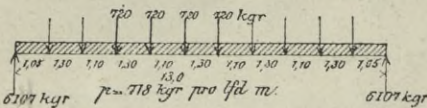 720 720 720 720 kgr
1,05 1,30 1,10 1,30 1,10 1,30 1,10 1,30 1,10 1,30 1,05
13,0
6107 kgr p= 718 kgr pro lfd m. 6107 kgr